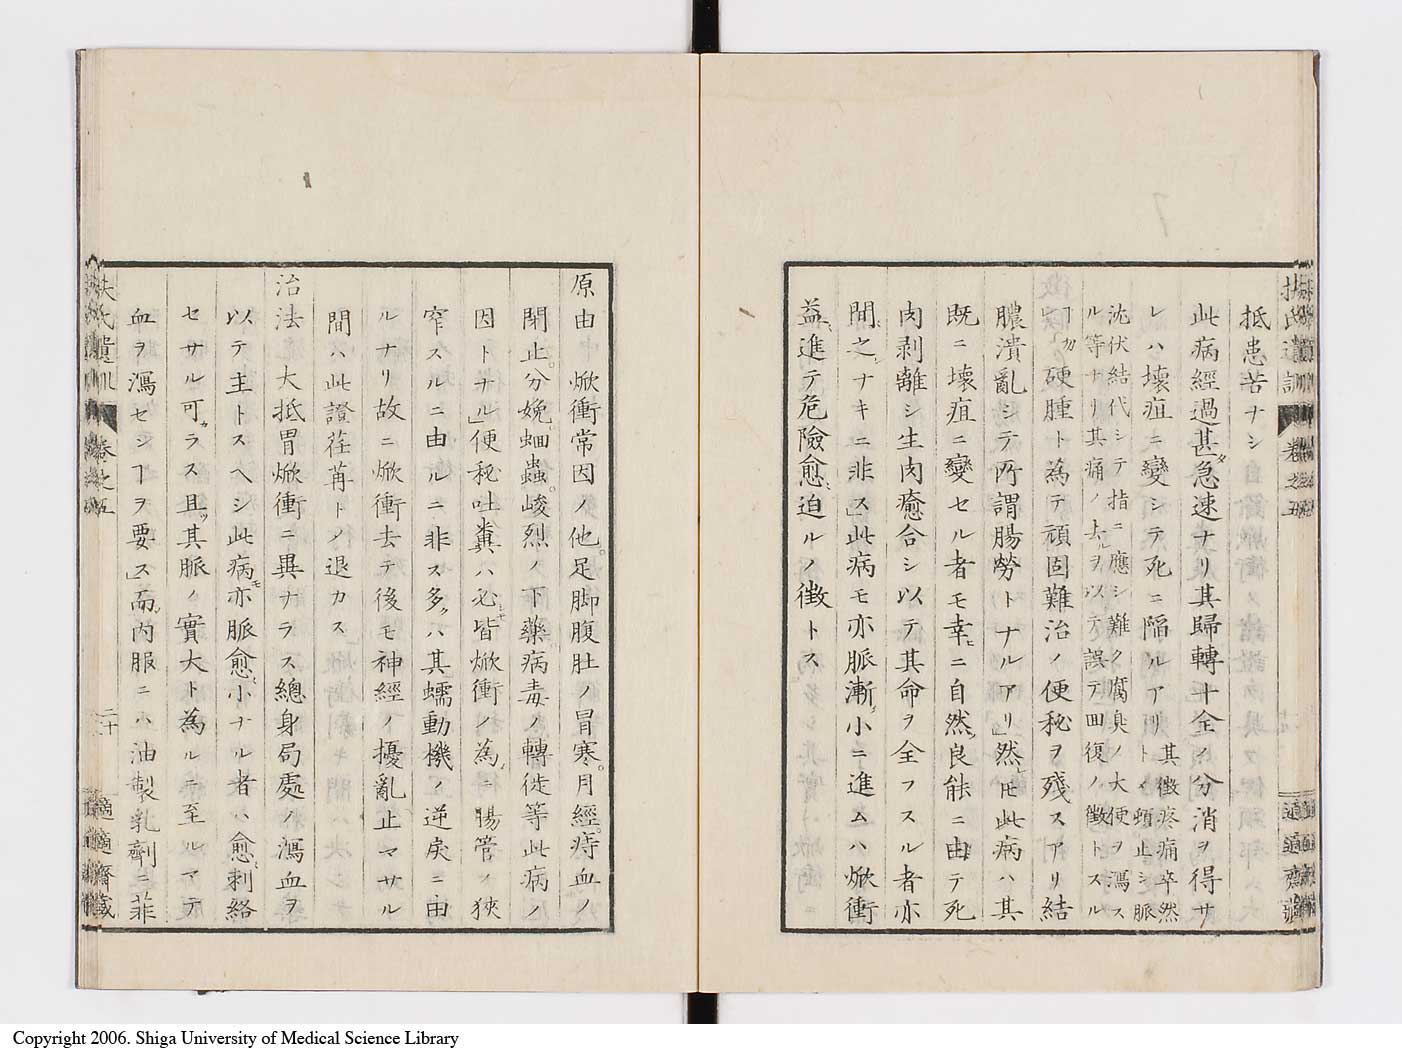 抵患苦ナシ
此病經過甚タ急速ナリ其歸轉十全ノ分消ヲ得サ
レハ壞疽ニ變シテ死ニ陷ルアリト其徵疼痛卒然ト頓止シ脈
沈伏結代シテ指ニ應シ難ク腐臭ノ大便ヲ瀉ス
ル等ナリ其痛ノ去ルヲ以テ誤テ囬復ノ徵トスル
ヿ勿レ硬腫ト為テ頑固難治ノ便秘ヲ殘スアリ結
膿潰亂シテ所謂腸勞トナルアリ」然𪜈此病ハ其
既ニ壞疽ニ變セル者モ幸ヒニ自然良能ニ由テ死
肉剥離シ生肉癒合シ以テ其命ヲ全フスル者亦
間之ナキニ非ス」此病モ亦脈漸ク小ニ進ムハ焮衝
益進テ危險愈迫ルノ徵トス
扶氏遺訓 卷之五 適適齋藏
原由 焮衝常因ノ他。足脚腹肚ノ冒寒。月經。痔血ノ
閉止。分娩。蛔蟲。峻烈ノ下藥。病毒ノ轉徙等此病ノ
因トナル」便秘吐糞ハ必シモ皆焮衝ノ為メ腸管ノ狹
窄スルニ由ルニ非ス多クハ其蠕動機ノ逆戾ニ由
ルナリ故ニ焮衝去テ後モ神經ノ擾亂止マサル
間ハ此證荏苒トノ退カス
治法 大抵胃焮衝ニ異ナラス總身局處ノ瀉血ヲ
以テ主トスヘシ此病モ亦脈愈小ナル者ハ愈刺絡
セサル可カラス且ツ其脈ノ實大ト為ルニ至ルマテ
血ヲ瀉センヿヲ要ス」而内服ニハ油製乳劑ニ菲
扶氏遺訓 卷之五 二十 適適齋藏
Copyright 2006. Shiga University of Medical Science Library